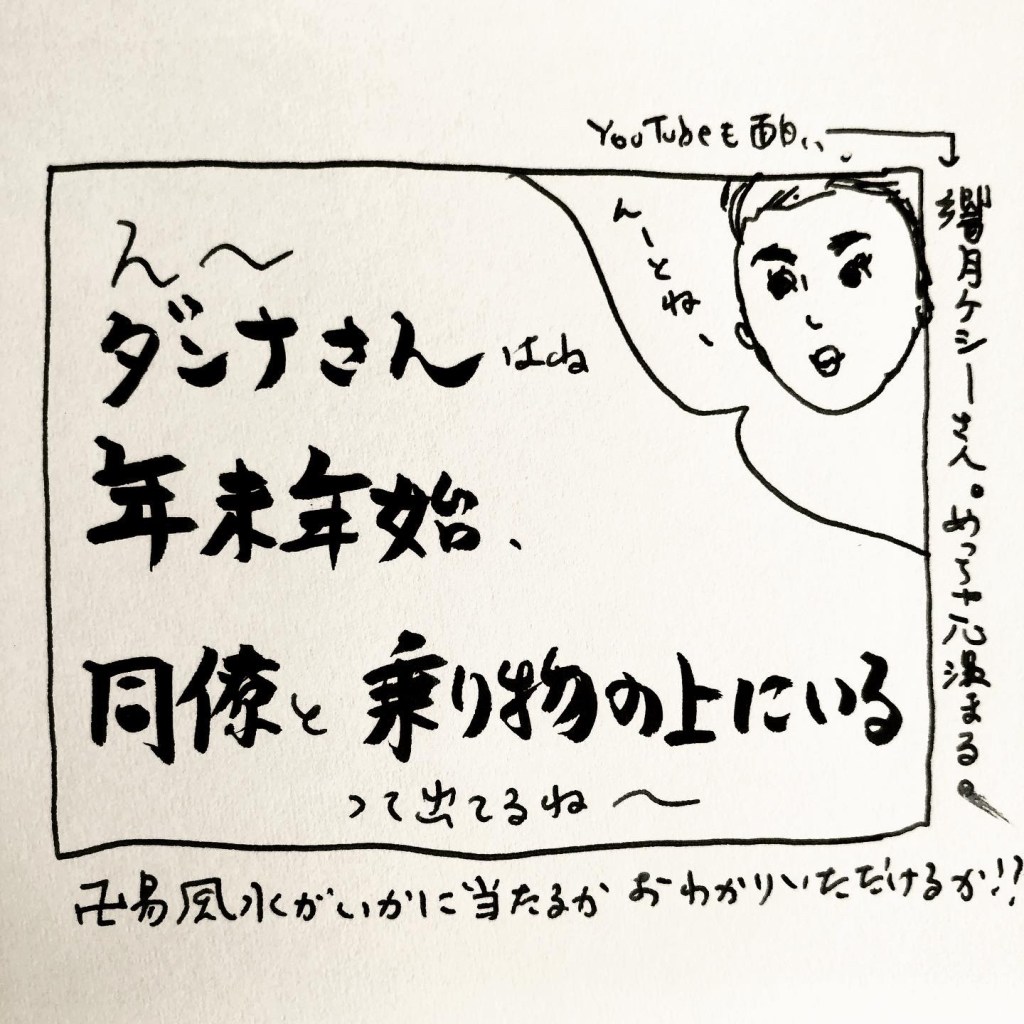 YouTubeも面白い
響月ケシーさん。めっちゃ心温まる。
んーとね、
ん〜
ダンナさんはね
年末年始、
同僚と乗り物の上にいる
って出てるね〜
卍易風水がいかに当たるかおわかりいただけるか!!